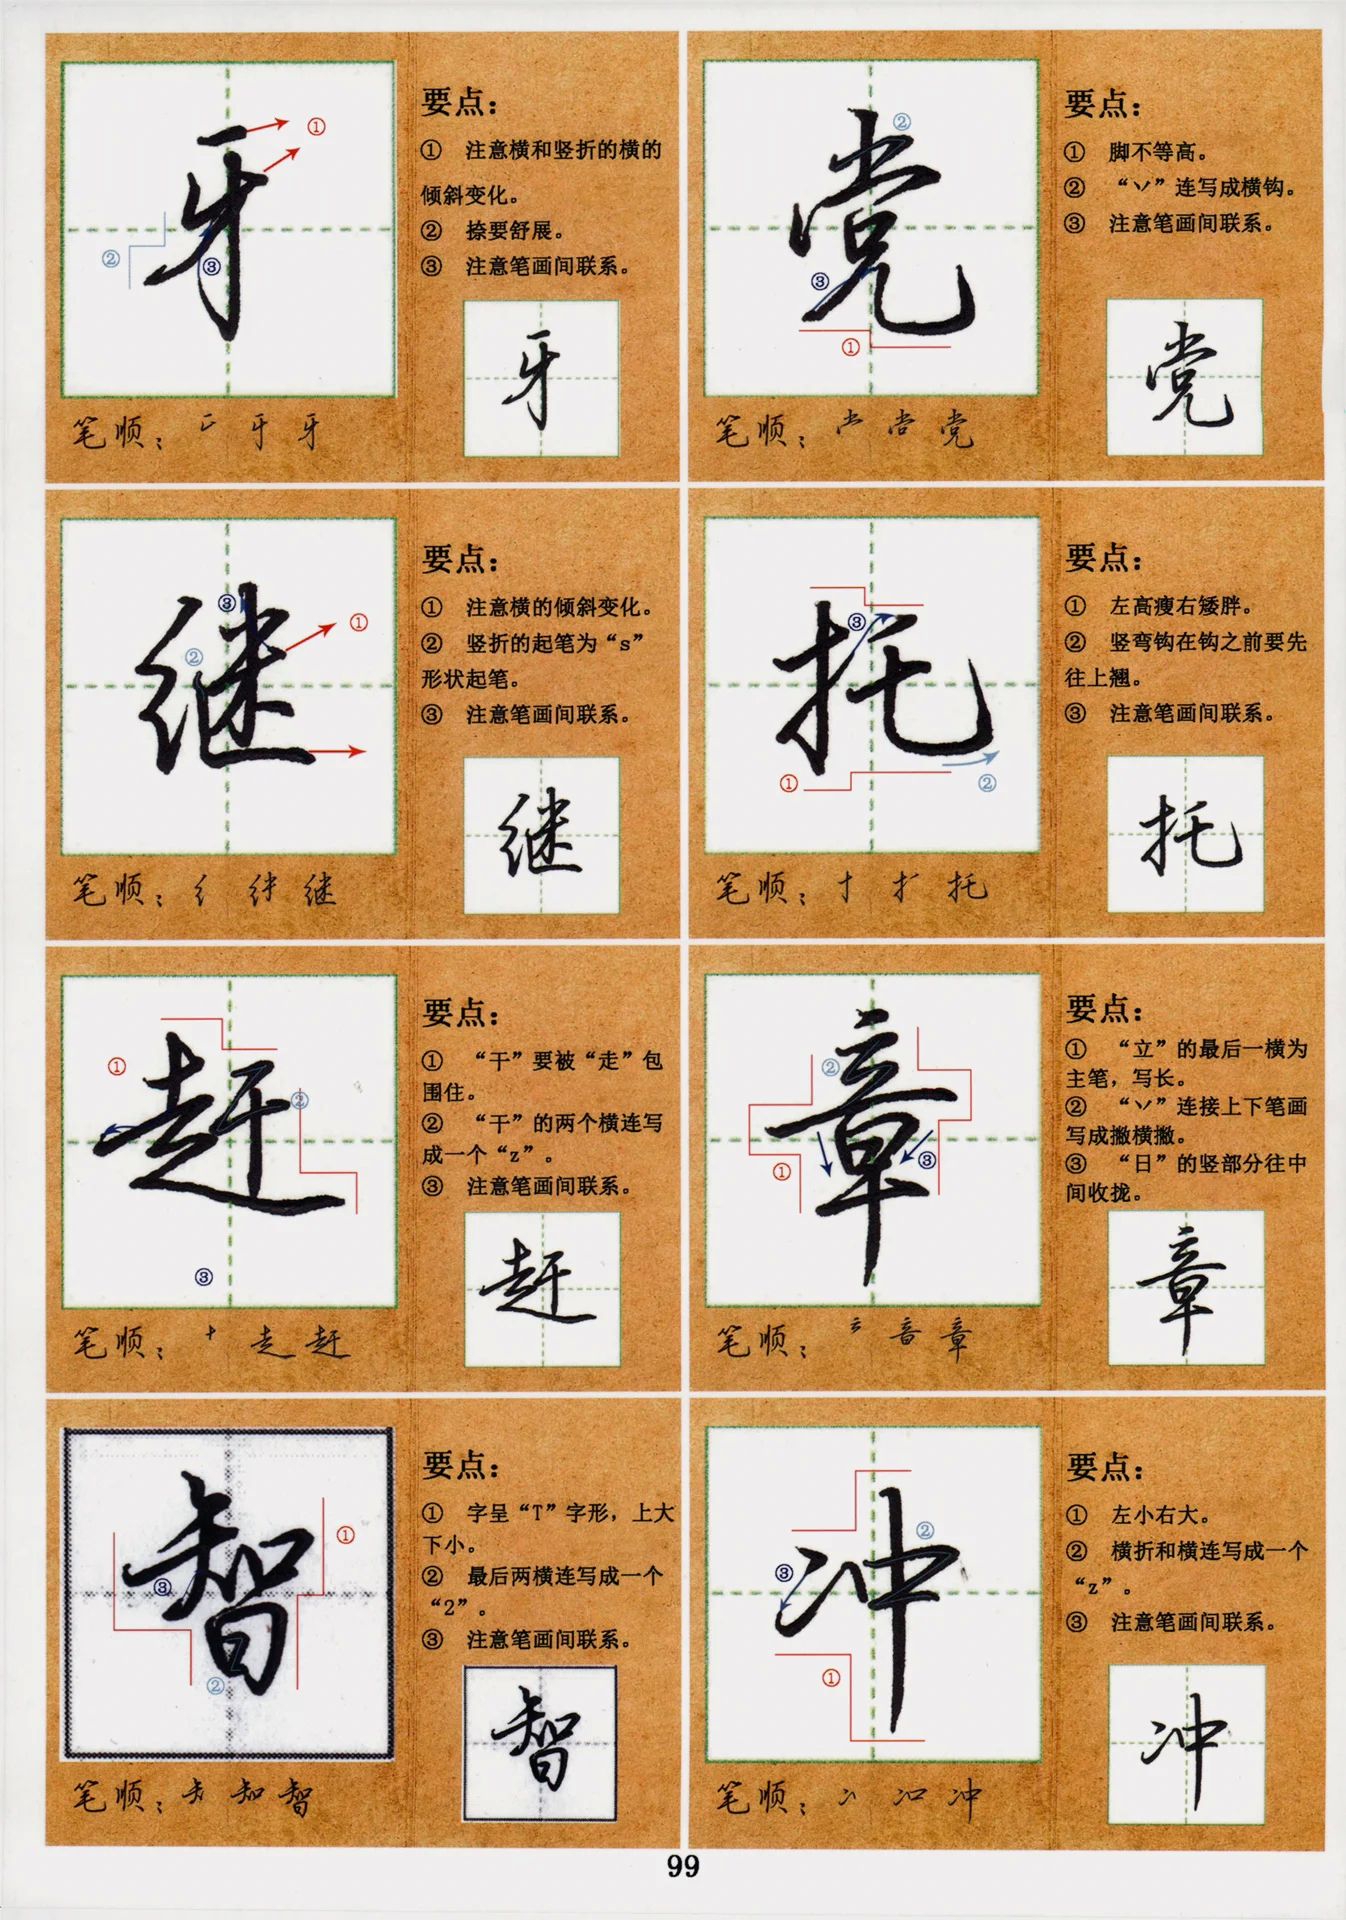 牙
①
②
③
要点：
① 注意横和竖折的横的
倾斜变化。
② 捺要舒展。
③ 注意笔画间联系。
牙
笔顺： 牙
党
②
③
①
要点：
① 脚不等高。
② “丷”连写成横钩。
③ 注意笔画间联系。
党
笔顺： 党
继
③
①
②
要点：
① 注意横的倾斜变化。
② 竖折的起笔为“s”
形状起笔。
③ 注意笔画间联系。
继
笔顺： 纟 继
托
③
①
②
要点：
① 左高瘦右矮胖。
② 竖弯钩在钩之前要先
往上翘。
③ 注意笔画间联系。
托
笔顺： 扌 托
赶
①
②
③
要点：
① “干”要被“走”包
围住。
② “干”的两个横连写
成一个“z”。
③ 注意笔画间联系。
赶
笔顺： 走 赶
章
②
①
③
要点：
① “立”的最后一横为
主笔，写长。
② “丷”连接上下笔画
写成撇横撇。
③ “日”的竖部分往中
间收拢。
章
笔顺： 音 章
智
①
③
②
要点：
① 字呈“T”字形，上大
下小。
② 最后两横连写成一个
“2”。
③ 注意笔画间联系。
智
笔顺： 矢 知 智
冲
②
③
①
要点：
① 左小右大。
② 横折和横连写成一个
“z”。
③ 注意笔画间联系。
冲
笔顺： 冫 冲
99